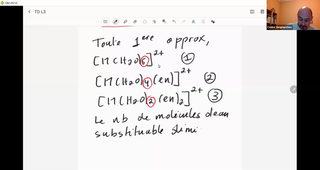 TD L3
Toute 1ere approx,
[M(H2O)6]2+ ①
[M(H2O)4(en)]2+ ②
[M(H2O)2(en)2]2+ ③
Le nb de molécules d'eau
substituable